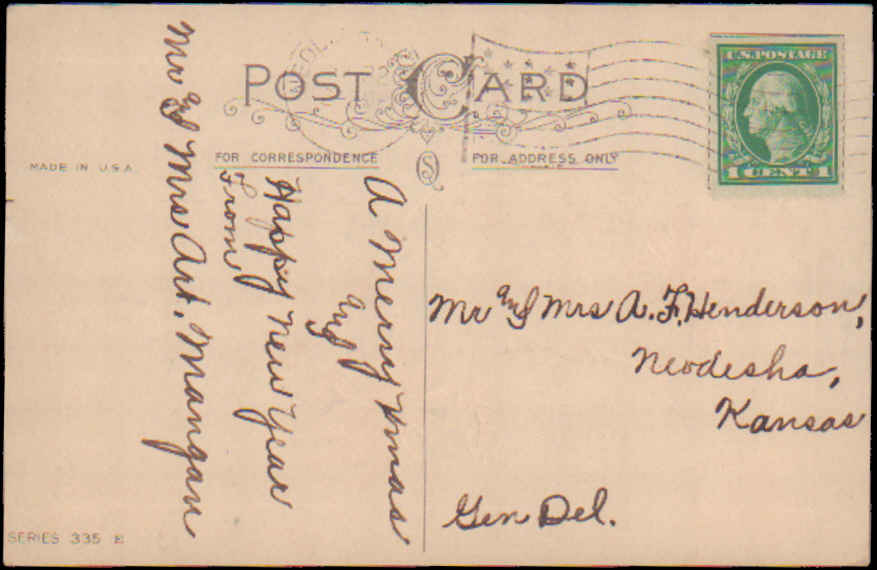 POST CARD
U.S. POSTAGE
1 CENT 1
MADE IN U.S.A.
FOR CORRESPONDENCE
FOR ADDRESS ONLY
A Merry Xmas
and
Happy New Year
From
Mr and Mrs Art. Mangan
Mr and Mrs A. F. Henderson,
Neodesha,
Kansas
Gen Del.
SERIES 335 E